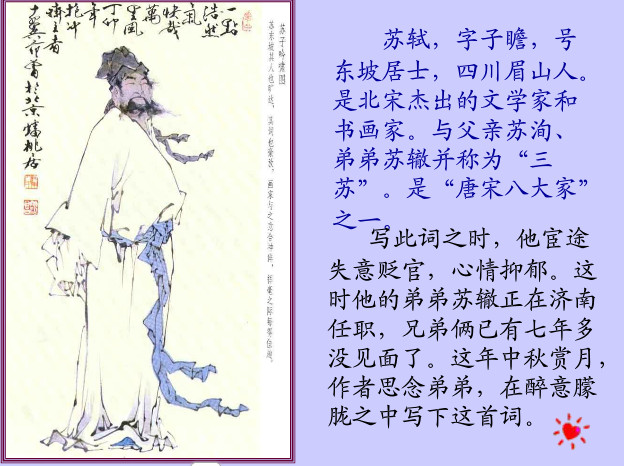 苏轼，字子瞻，号
东坡居士，四川眉山人。
是北宋杰出的文学家和
书画家。与父亲苏洵、
弟弟苏辙并称为“三
苏”。是“唐宋八大家”
之一。
写此词之时，他宦途
失意贬官，心情抑郁。这
时他的弟弟苏辙正在济南
任职，兄弟俩已有七年多
没见面了。这年中秋赏月，
作者思念弟弟，在醉意朦
胧之中写下这首词。
一点
浩然
气
快哉
万
里风
丁卯
年
苏子吟啸图